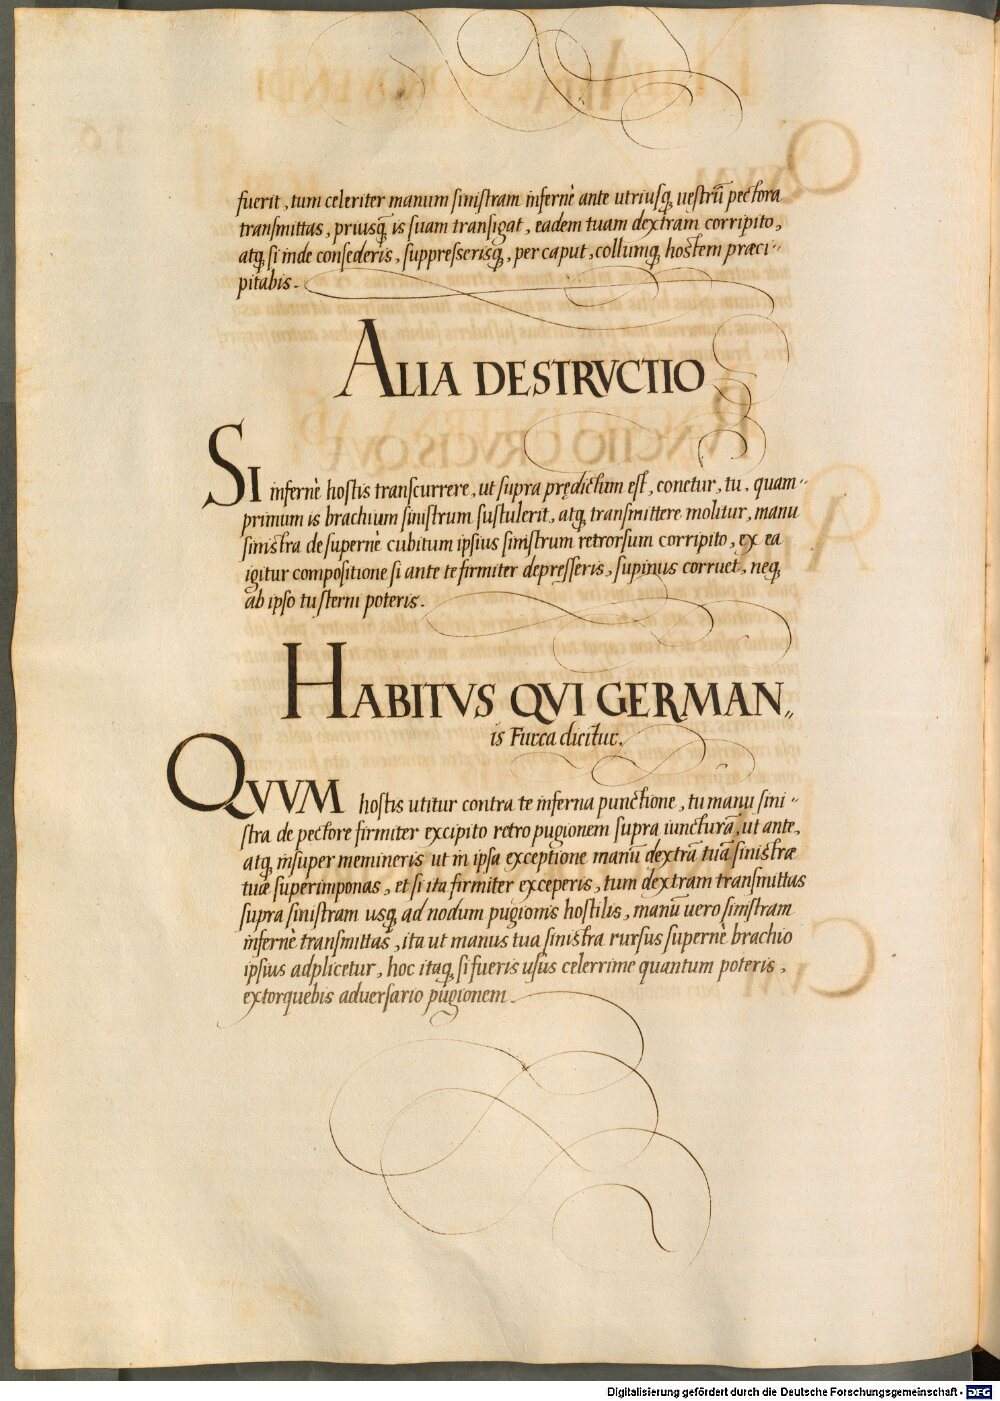 fuerit, tum celeriter manum sinistram infernè ante utriusq, uestrū pectora
transmittas, priusq̄, is suam transigat, eadem tuam dextram corripito,
atq, si inde consederis, suppresserisq, per caput, collumq, hostem præci-
pitabis.
ALIA DESTRVCTIO
SI infernè hostis transcurrere, ut supra prędictum est, conetur, tu, quam-
primum is brachium sinistrum sustulerit, atq, transmittere molitur, manu
sinistra de supernè cubitum ipsius sinistrum retrorsum corripito, ex ea
igitur compositione si ante te firmiter depresseris, supinus corruet, neq,
ab ipso tu sterni poteris.
HABITVS QVI GERMAN„
is Furca dicitur.
QVVM hostis utitur contra te inferna punctione, tu manu sini-
stra de pectore firmiter excipito retro pugionem supra iuncturā, ut ante,
atq, insuper memineris ut in ipsa exceptione manū dextrā tuā sinistræ
tuæ superimponas, et si ita firmiter exceperis, tum dextram transmittas
supra sinistram usq, ad nodum pugionis hostilis, manū uero sinistram
infernè transmittas, ita ut manus tua sinistra rursus supernè brachio
ipsius adplicetur, hoc itaq, si fueris usus celerrime quantum poteris,
extorquebis aduersario pugionem.
Digitalisierung gefördert durch die Deutsche Forschungsgemeinschaft - DFG